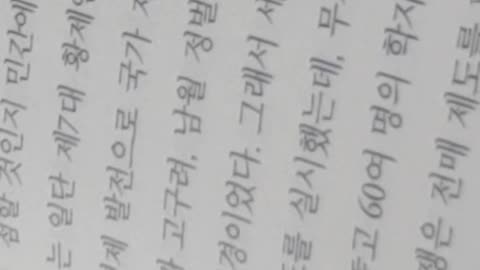 접할 것인지 민간에
는 일단 제7대 황제인
발전으로 국가
고구려, 남월 정벌
경이었다. 그래서
를 실시했는데,
고 60여 명의 학자
은 전매 제도를